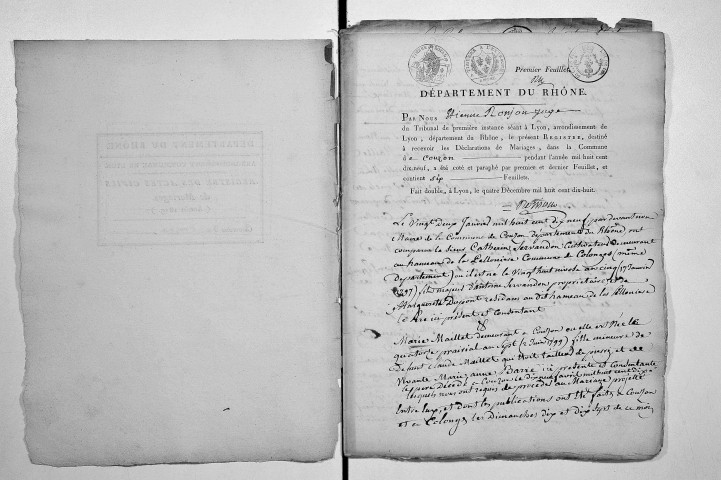 Premier Feuillet.
DÉPARTEMENT DU RHÔNE.
PAR NOUS Etienne Ronjon Juge
du Tribunal de première instance séant à Lyon, arrondissement de
Lyon, département du Rhône, le présent REGISTRE, destiné
à recevoir les Déclarations de Mariages, dans la Commune
de Couzon pendant l'année mil huit cent
dix-neuf, a été coté et paraphé par premier et dernier Feuillet, et
contient six Feuillets.
Fait double, à Lyon, le quatre Décembre mil huit cent dix-huit.
Le Vingt deux Janvier mil huit cent dix neuf par devant nous
Maire de la Commune de Couzon département du Rhône, ont
comparu le sieur Catherin Servandon Cultivateur demeurant
au hameau de la Pellonière Commune de Colonges (même
département) où il est né le Vingt huit nivose an cinq (17 Janvier
1797) fils majeur d'Antoine Servandon propriétaire et de
Marguerite Dupont residans au dit hameau de la Pelloniere
le Père ici présent et consentant
&
Marie Maillet demeurant à Couzon où elle est Née le
quatorze prairial an Sept (2 Juin 1799) fille mineure de
Defunt Claude Maillet qui était tailleur de pierres et de
Vivante Marie anne Barré ici présente et Consentante
le père Décédé à Couzon le
lesquels nous ont requis de procéder au Mariage projetté
Entre eux, et dont les publications ont été faites à Couzon
et à Colonges les Dimanches dix et dix sept de ce mois